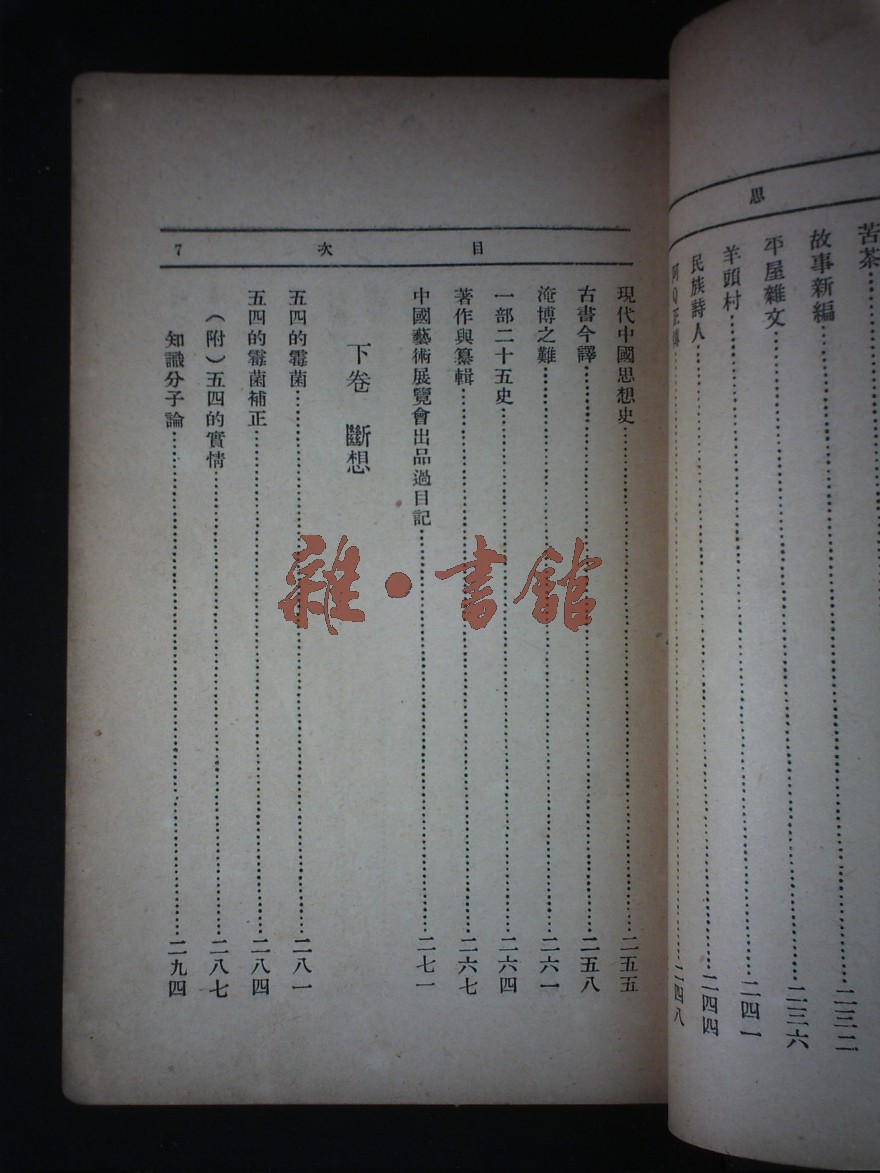 思
苦茶……二三二
故事新編……二三六
平屋雜文……二四一
羊頭村……二四四
民族詩人……二四八
阿Q正傳
目次 7
現代中國思想史……二五五
古書今譯……二五八
淹博之難……二六一
一部二十五史……二六四
著作與纂輯……二六七
中國藝術展覽會出品過目記……二七一
下卷 斷想
五四的霉菌……二八一
五四的霉菌補正……二八四
(附)五四的實情……二八七
知識分子論……二九四
雜·書館